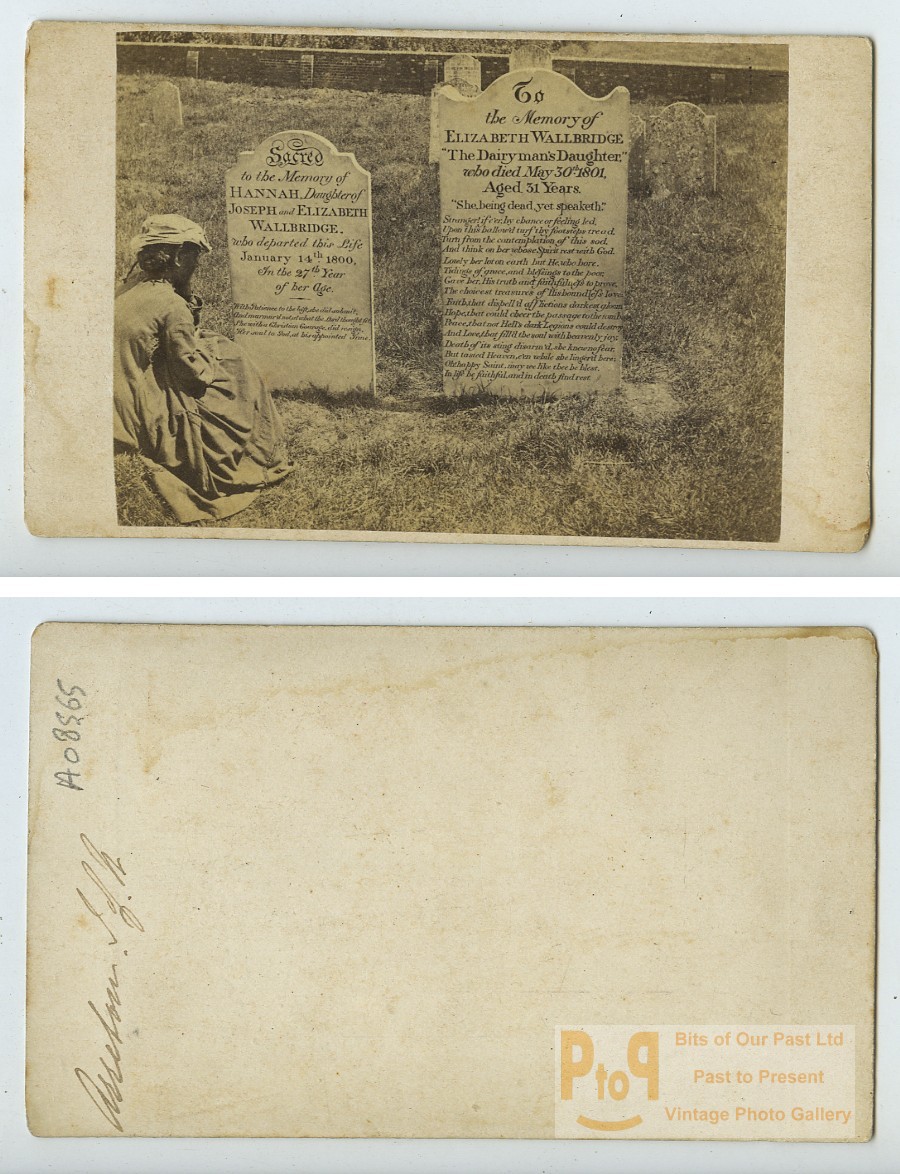 Sacred
to the Memory of
HANNAH, Daughter of
JOSEPH and ELIZABETH
WALLBRIDGE,
who departed this Life
January 14th 1800,
In the 27th Year
of her Age.
With Patience to the last, she did submit,
And murmur'd not at what the Lord thought fit
She with a Christian Courage, did resign
Her soul to God, at his appointed Time.
To
the Memory of
ELIZABETH WALLBRIDGE
"The Dairyman's Daughter,"
who died May 30th 1801,
Aged 31 Years.
"She, being dead, yet speaketh."
Stranger! if e'er, by chance or feeling led,
Upon this hallow'd turf thy footsteps tread,
Turn from the contemplation of this sod,
And think on her whose Spirit rest with God.
Lowly her lot on earth but He, who bore,
Tidings of grace, and blessings to the poor,
Gave her, His truth and faithfulness to prove,
The choicest treasures of His boundless love.
Faith, that dispell'd affliction's darkest gloom,
Hope, that could cheer the passage to the tomb,
Peace, that not Hell's dark Legions could destroy
And Love, that fill'd the soul with heavenly joy.
Death of its sting disarm'd, she knew no fear,
But tasted Heaven, e'en while she linger'd here,
Oh happy Saint, may we like thee be blest,
In life be faithful, and in death find rest.
A08565
Arreton. I of W
PtoP
Bits of Our Past Ltd
Past to Present
Vintage Photo Gallery